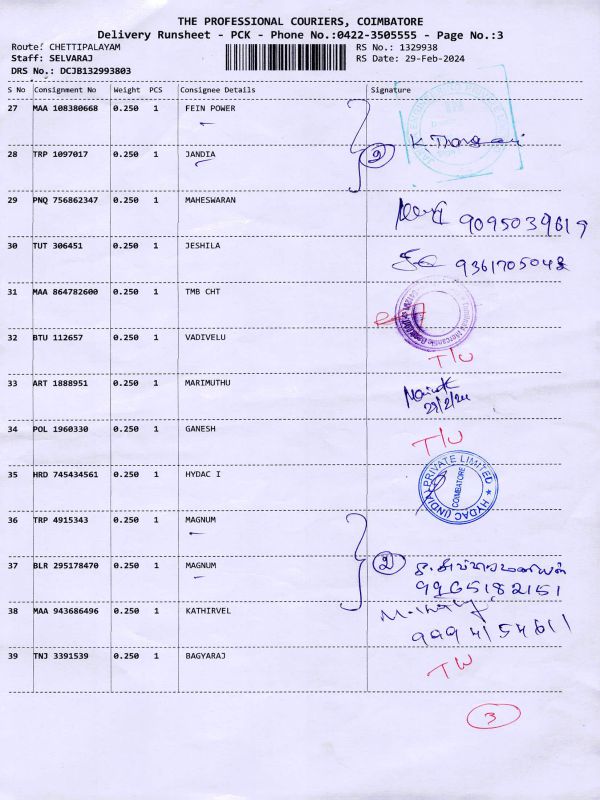 THE PROFESSIONAL COURIERS, COIMBATORE
Delivery Runsheet - PCK - Phone No.:0422-3505555 - Page No.:3
Route: CHETTIPALAYAM RS No.: 1329938
Staff: SELVARAJ RS Date: 29-Feb-2024
DRS No.: DCJB132993803
S No Consignment No Weight PCS Consignee Details Signature
27 MAA 108380668 0.250 1 FEIN POWER
28 TRP 1097017 0.250 1 JANDIA
29 PNQ 756862347 0.250 1 MAHESWARAN
9095039619
30 TUT 306451 0.250 1 JESHILA
31 MAA 864782600 0.250 1 TMB CHT
32 BTU 112657 0.250 1 VADIVELU
T/U
33 ART 1888951 0.250 1 MARIMUTHU
29/2/24
34 POL 1960330 0.250 1 GANESH T/U
35 HRD 745434561 0.250 1 HYDAC I
HYDAC (INDIA) PRIVATE LIMITED
COIMBATORE
36 TRP 4915343 0.250 1 MAGNUM
37 BLR 295178470 0.250 1 MAGNUM 2
9965182151
38 MAA 943686496 0.250 1 KATHIRVEL
9994154611
39 TNJ 3391539 0.250 1 BAGYARAJ
3